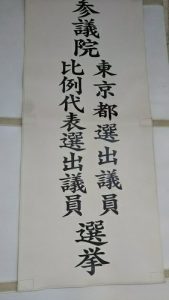 参議院
東京都選出議員
比例代表選出議員
選挙